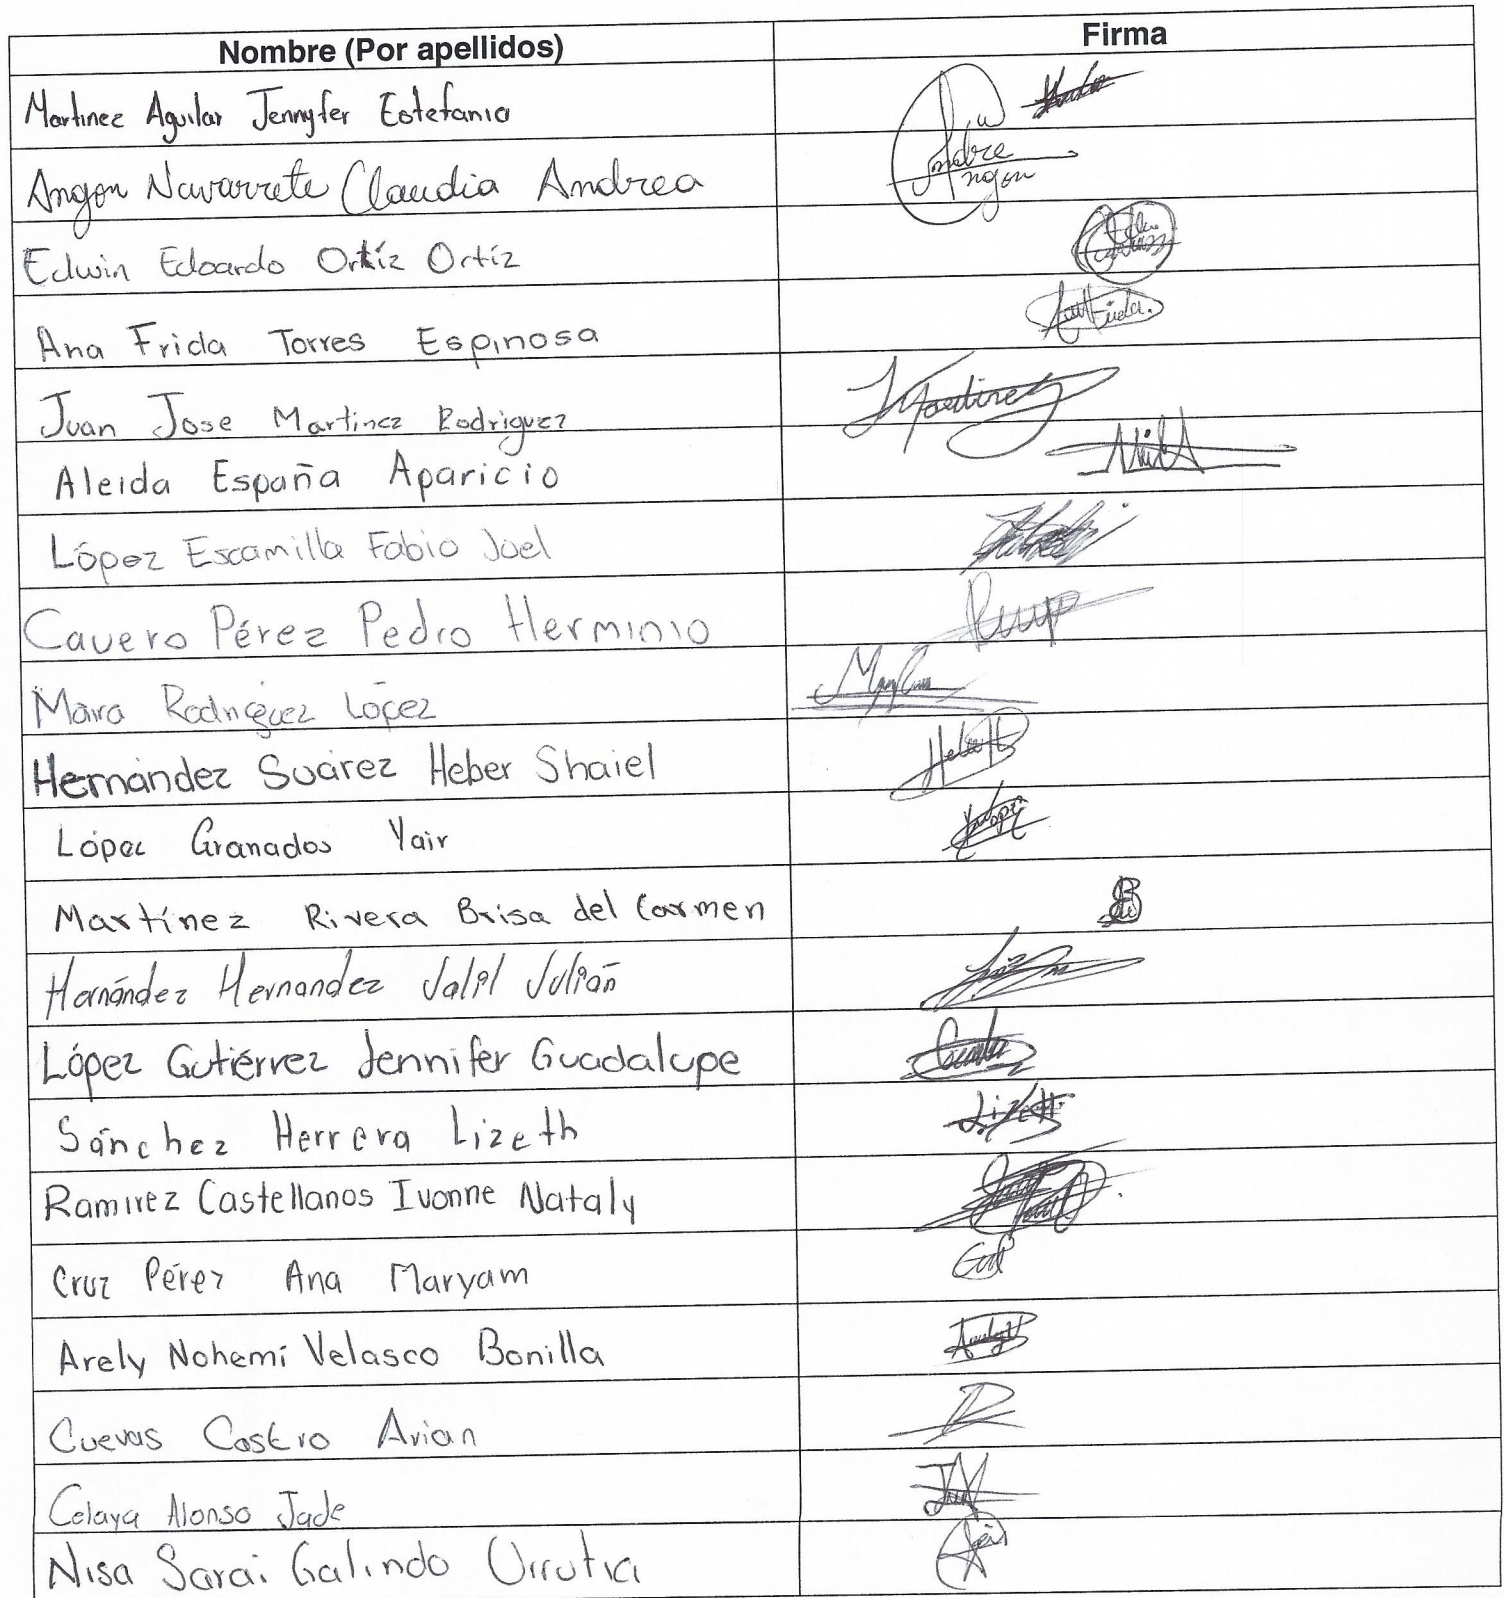 Nombre (Por apellidos) Firma
Martinez Aguilar Jennyfer Estefania
Angon Navarrete Claudia Andrea Andrea Angon
Edwin Edoardo Ortíz Ortíz
Ana Frida Torres Espinosa
Juan Jose Martinez Rodriguez JMartinez
Aleida España Aparicio
López Escamilla Fabio Joel
Cavero Pérez Pedro Herminio
Mara Rodriguez López
Hernández Suárez Heber Shaiel
López Granados Yair
Martínez Rivera Brisa del Carmen
Hernández Hernandez Jalil Julián
López Gutiérrez Jennifer Guadalupe
Sánchez Herrera Lizeth Lizeth
Ramirez Castellanos Ivonne Nataly
Cruz Pérez Ana Maryam
Arely Nohemí Velasco Bonilla
Cuevas Castro Arian
Celaya Alonso Jade
Nisa Sarai Galindo Urrutia